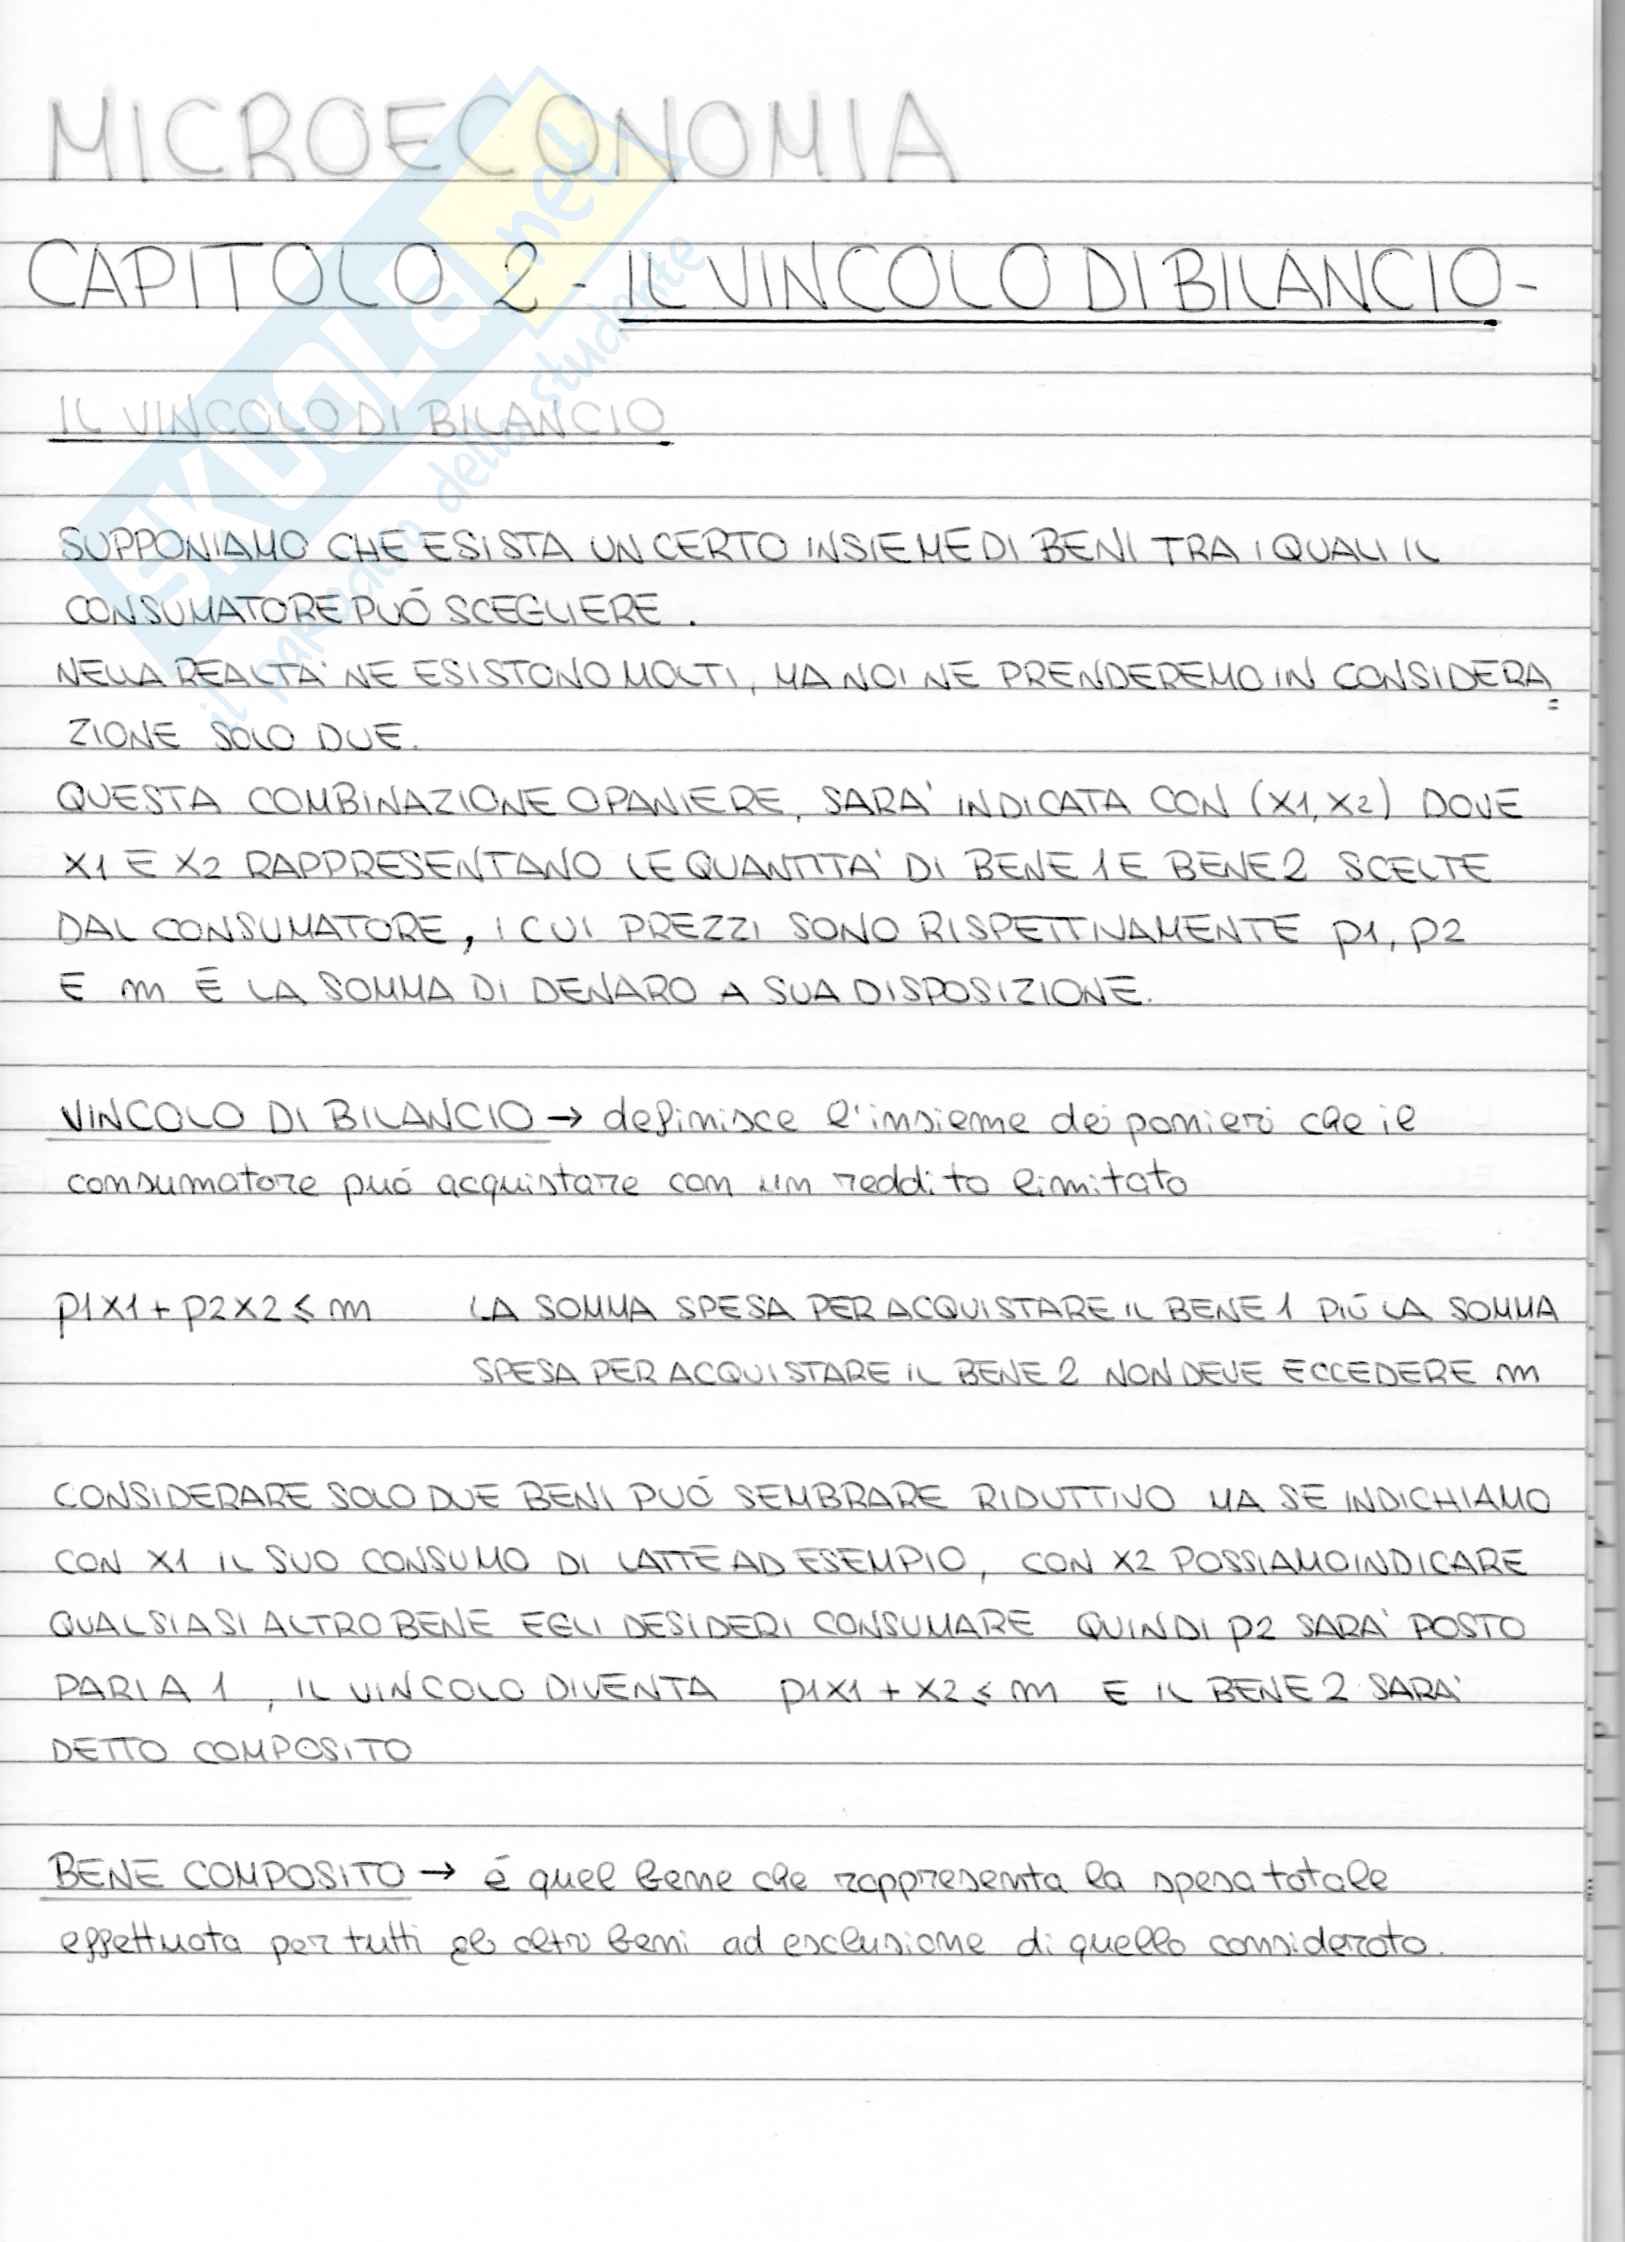 MICROECONOMIA
CAPITOLO 2 - IL VINCOLO DI BILANCIO -
IL VINCOLO DI BILANCIO
SUPPONIAMO CHE ESISTA UN CERTO INSIEME DI BENI TRA I QUALI IL
CONSUMATORE PUÓ SCEGLIERE.
NELLA REALTA' NE ESISTONO MOLTI, MA NOI NE PRENDEREMO IN CONSIDERA=
ZIONE SOLO DUE.
QUESTA COMBINAZIONE O PANIERE, SARA' INDICATA CON (X1, X2) DOVE
X1 E X2 RAPPRESENTANO LE QUANTITA' DI BENE 1 E BENE 2 SCELTE
DAL CONSUMATORE, I CUI PREZZI SONO RISPETTIVAMENTE p1, p2
E m É LA SOMMA DI DENARO A SUA DISPOSIZIONE.
VINCOLO DI BILANCIO → definisce l'insieme dei panieri che il
consumatore puó acquistare con un reddito limitato
p1X1 + p2X2 ≤ m LA SOMMA SPESA PER ACQUISTARE IL BENE 1 PIÚ LA SOMMA
SPESA PER ACQUISTARE IL BENE 2 NON DEVE ECCEDERE m
CONSIDERARE SOLO DUE BENI PUÓ SEMBRARE RIDUTTIVO MA SE INDICHIAMO
CON X1 IL SUO CONSUMO DI LATTE AD ESEMPIO, CON X2 POSSIAMO INDICARE
QUALSIASI ALTRO BENE EGLI DESIDERI CONSUMARE QUINDI p2 SARA' POSTO
PARI A 1, IL VINCOLO DIVENTA p1X1 + X2 ≤ m E IL BENE 2 SARA'
DETTO COMPOSITO
BENE COMPOSITO → é quel bene che rappresenta la spesa totale
effettuata per tutti gli altri beni ad esclusione di quello considerato.
SKUOLA.net
il paradiso dello studente